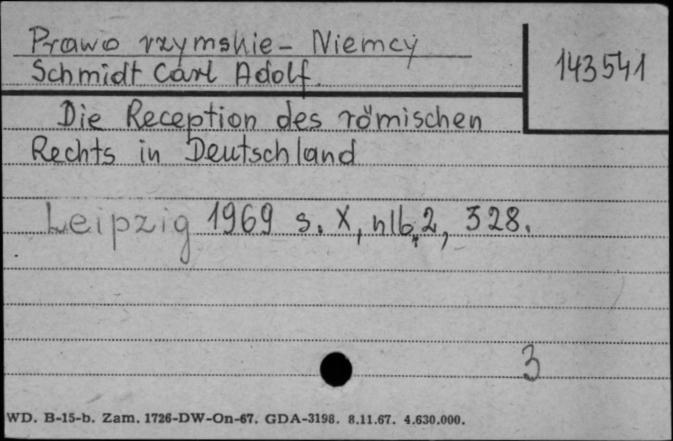 Prawo rzymskie - Niemcy
143541
Schmidt Carl Adolf.
Die Reception des römischen
Rechts in Deutschland
Leipzig 1969 s. X, nlb, 2, 328.
3
WD. B-15-b. Zam. 1726-DW-On-67. GDA-3198. 8.11.67. 4.630.000.